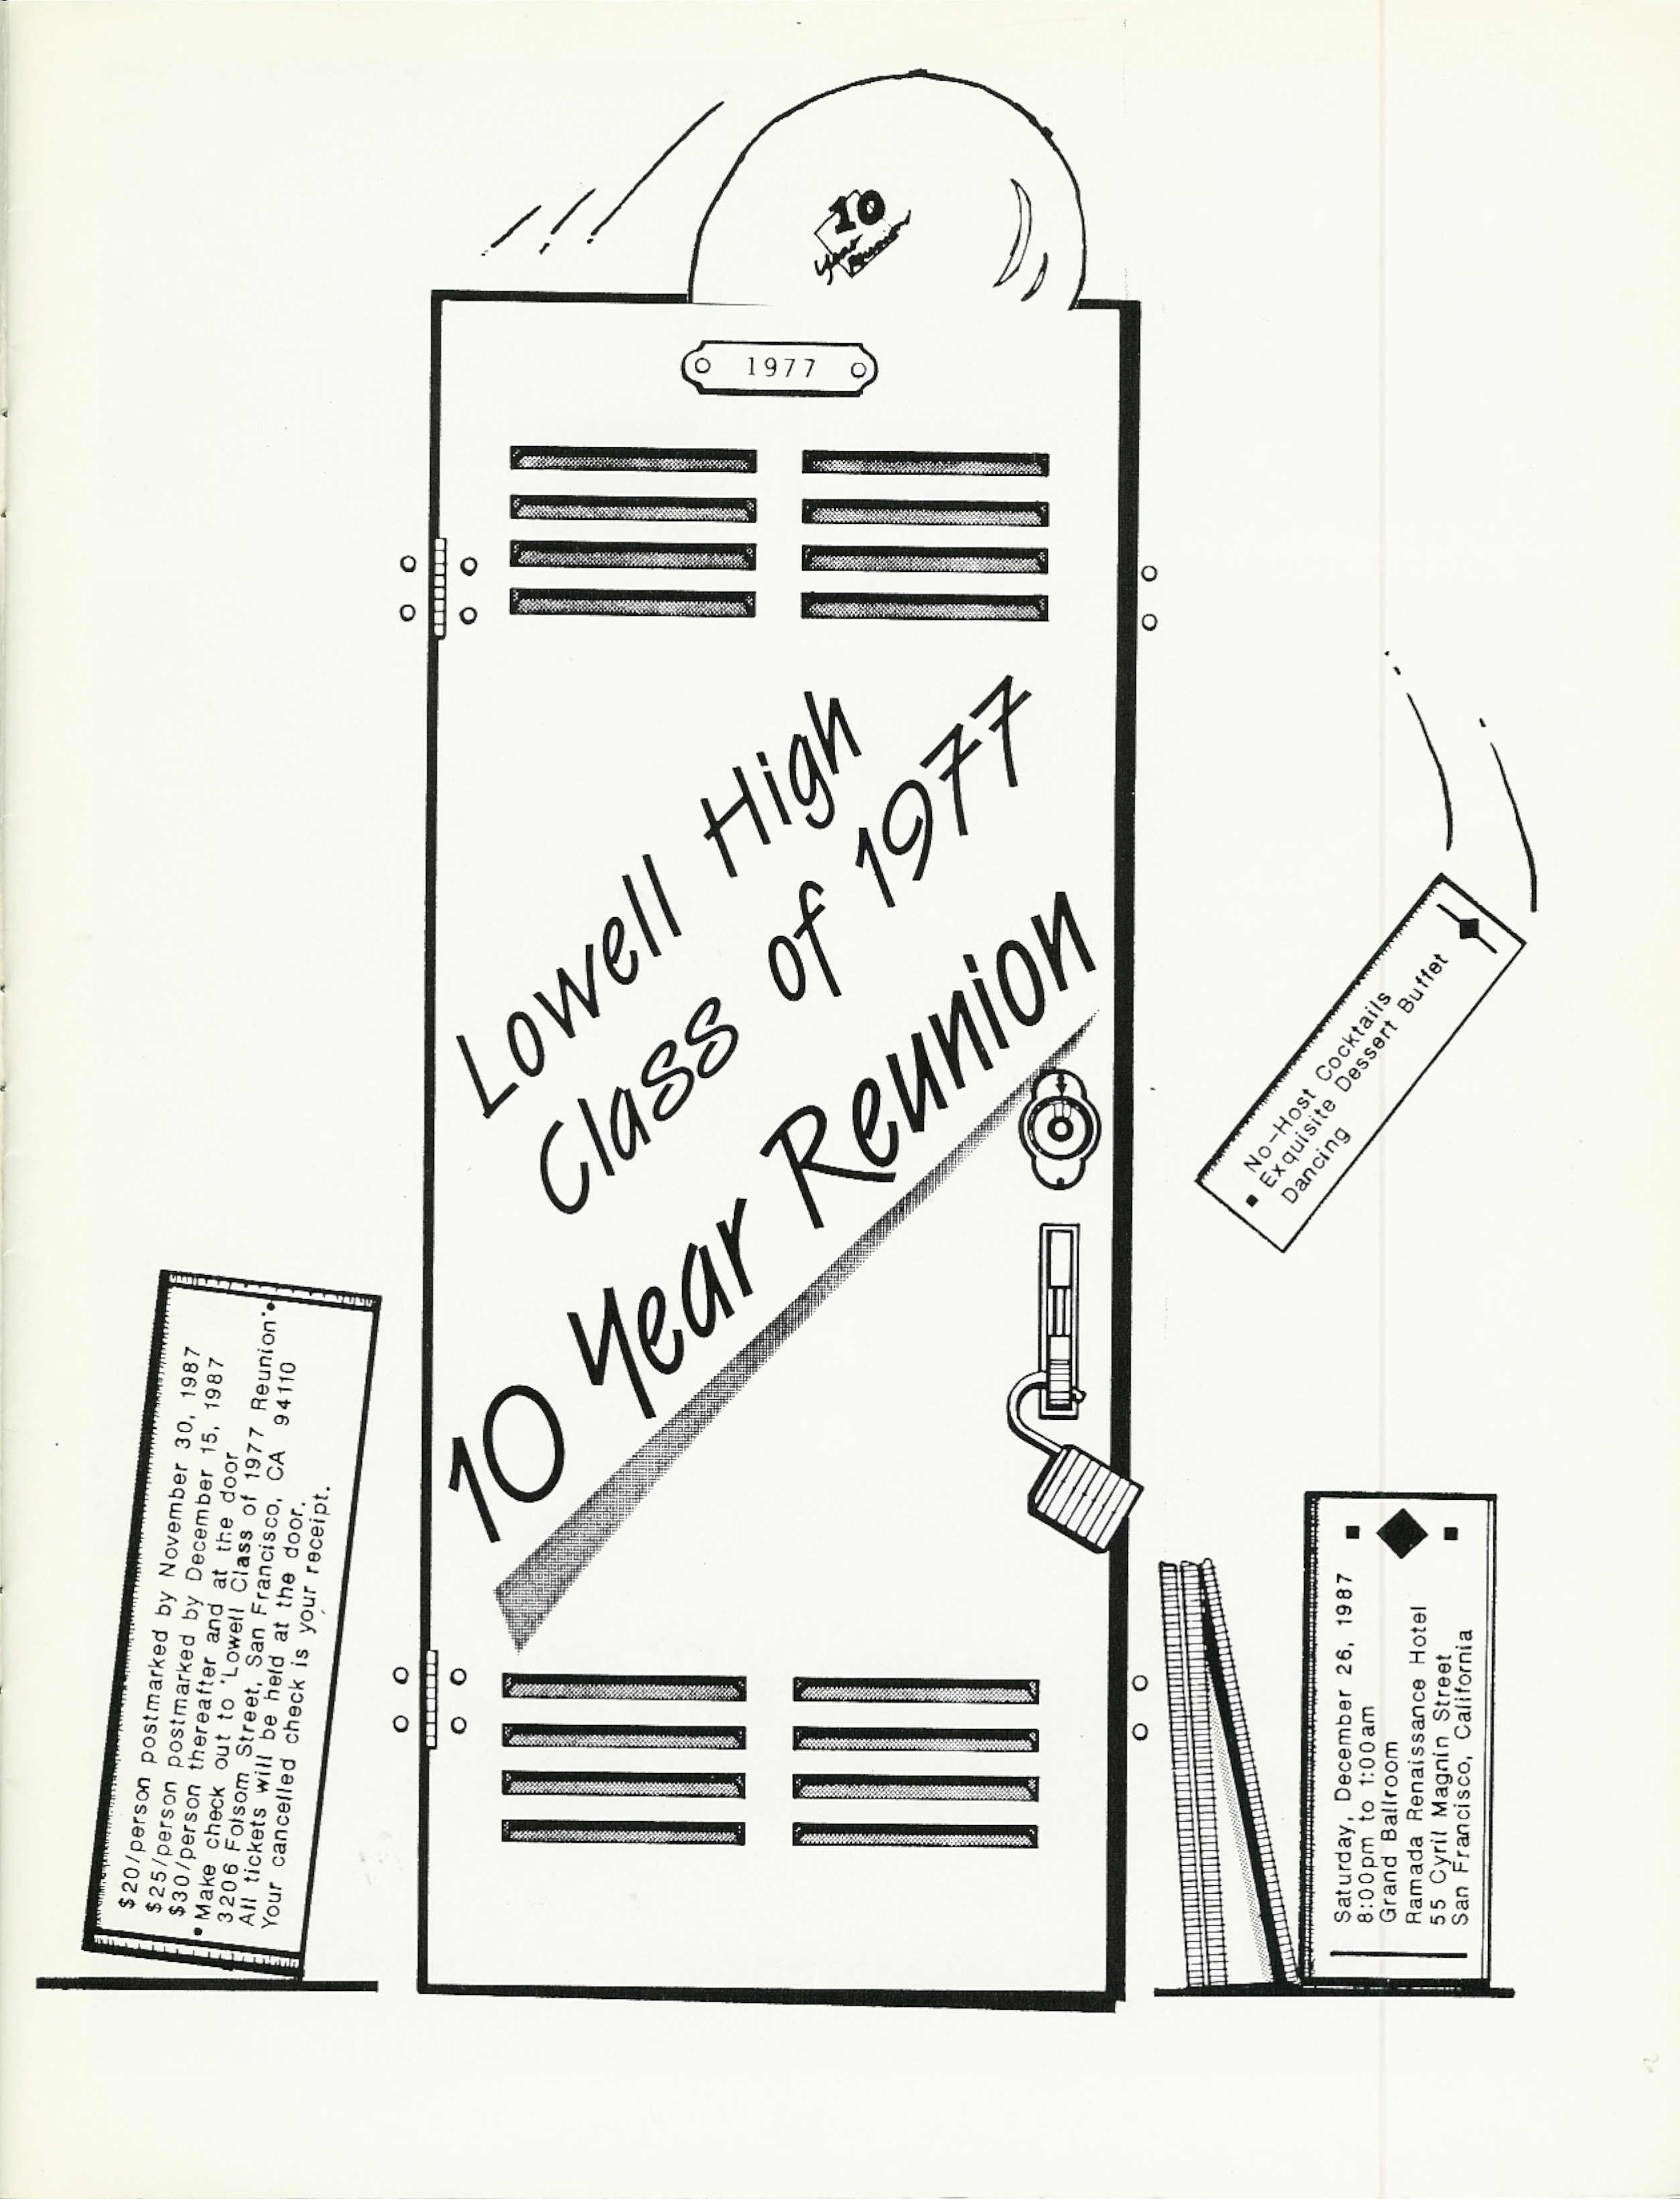 10
Year
Reunion
1977
Lowell High
Class of 1977
10 Year Reunion
No-Host Cocktails
Exquisite Dessert Buffet
Dancing
$20/person postmarked by November 30, 1987
$25/person postmarked by December 15, 1987
$30/person thereafter and at the door
Make check out to 'Lowell Class of 1977 Reunion'
3206 Folsom Street, San Francisco, CA 94110
All tickets will be held at the door.
Your cancelled check is your receipt.
Saturday, December 26, 1987
8:00pm to 1:00am
Grand Ballroom
Ramada Renaissance Hotel
55 Cyril Magnin Street
San Francisco, California